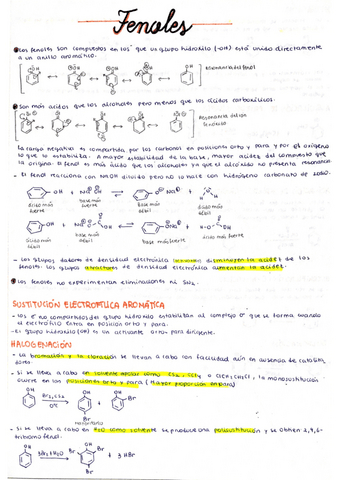 Fenoles
Los fenoles son compuestos en los que un grupo hidroxilo (-OH) está unido directamente
a un anillo aromático.
Resonancia del fenol
Son más ácidos que los alcoholes pero menos que los ácidos carboxílicos.
Resonancia del ion
fenóxido
La carga negativa es compartida por los carbonos en posiciones orto y para y por el oxígeno
lo que lo estabiliza. A mayor estabilidad de la base, mayor acidez del compuesto que
la origina. El fenol es más ácido que los alcoholes ya que el alcóxido no presenta resonancia
- El fenol reacciona con NaOH diluido pero no lo hace con hidrógeno carbonato de sodio.
ácido más
fuerte
base más
fuerte
base más
débil
ácido más
débil
ácido más
débil
base más
débil
base más fuerte
ácido más
fuerte
- Los grupos dadores de densidad electrónica disminuyen la acidez de los
fenoles. Los grupos atractores de densidad electrónica aumentan la acidez.
Los fenoles no experimentan eliminaciones ni SN2.
SUSTITUCIÓN ELECTROFÍLICA AROMÁTICA
- Los e⁻ no compartidos del grupo hidroxilo estabilizan al complejo σ que se forma cuando
el electrófilo entra en posición orto y para.
- El grupo hidroxilo (OH) es un activante orto- para- dirigente.
HALOGENACIÓN
- La bromación y la cloración se llevan a cabo con facilidad aún en ausencia de
- Si se lleva a cabo en solvente apolar como CS2, CCl4 la monosustitución
ocurre en las posiciones orto y para (Mayor proporción en para)
OH
Br2, CS2
0°C
OH
Br
OH
Br
- Si se lleva a cabo en H2O como solvente se produce una polisustitución y se obtiene 2,4,6-
tribromo fenol.
OH
3Br2 + H2O
OH
Br
Br
Br
+ 3 HBr